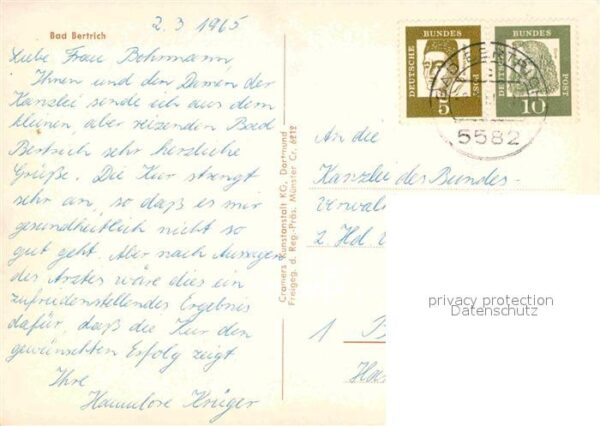 Bad Bertrich
2.3.1965
Liebe Frau Bohrmann,
Ihnen und den Damen der
Kanzlei sende ich aus dem
kleinen, aber reizenden Bad
Bertrich sehr herzliche
Grüße. Die Kur strengt
sehr an, so daß es mir
gesundheitlich nicht so
gut geht. Aber nach Aussagen
des Arztes wäre dies ein
zufriedenstellendes Ergebnis
dafür, daß die Kur den
gewünschten Erfolg zeigt
Ihre
Hannelore Krüger
Cramers Kunstanstalt KG, Dortmund
Freigeg. d. Reg.-Präs. Münster Cr. 6212
DEUTSCHE BUNDES POST
5
DEUTSCHE BUNDES POST
10
BAD BERTRICH
5582
An die
Kanzlei des Bundes-
verwal
z. Hd.
1 B
privacy protection
Datenschutz